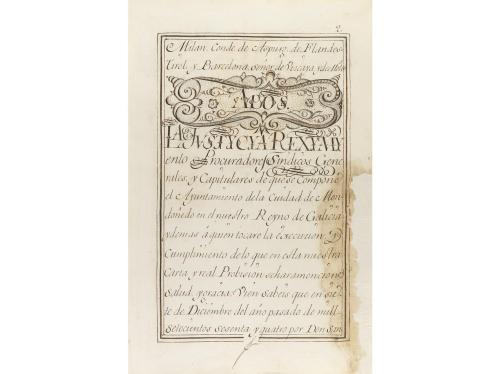 2.
Milan. Conde de Aspurg, de Flandes
Tirol, y Barcelona, Señor de Vizcaya, y de Moli
A VOS.
LA JVSTYCYA REXYMY
ento Procuradores Sindicos Gene
rales, y Capitulares de que se Compone
el Ayuntamiento de la Cuidad de Mon
doñedo en el nuestro Reyno de Galicia
y demas à quien tocare la execucion, y
Cumplimiento de lo que en esta nuestra
Carta y real Probision se hara moncion
Salud, y gracia: Vien Sabeis que en sie
te de Diciembre del año pasado de mill
Setecientos Sesenta y quatro por Don San